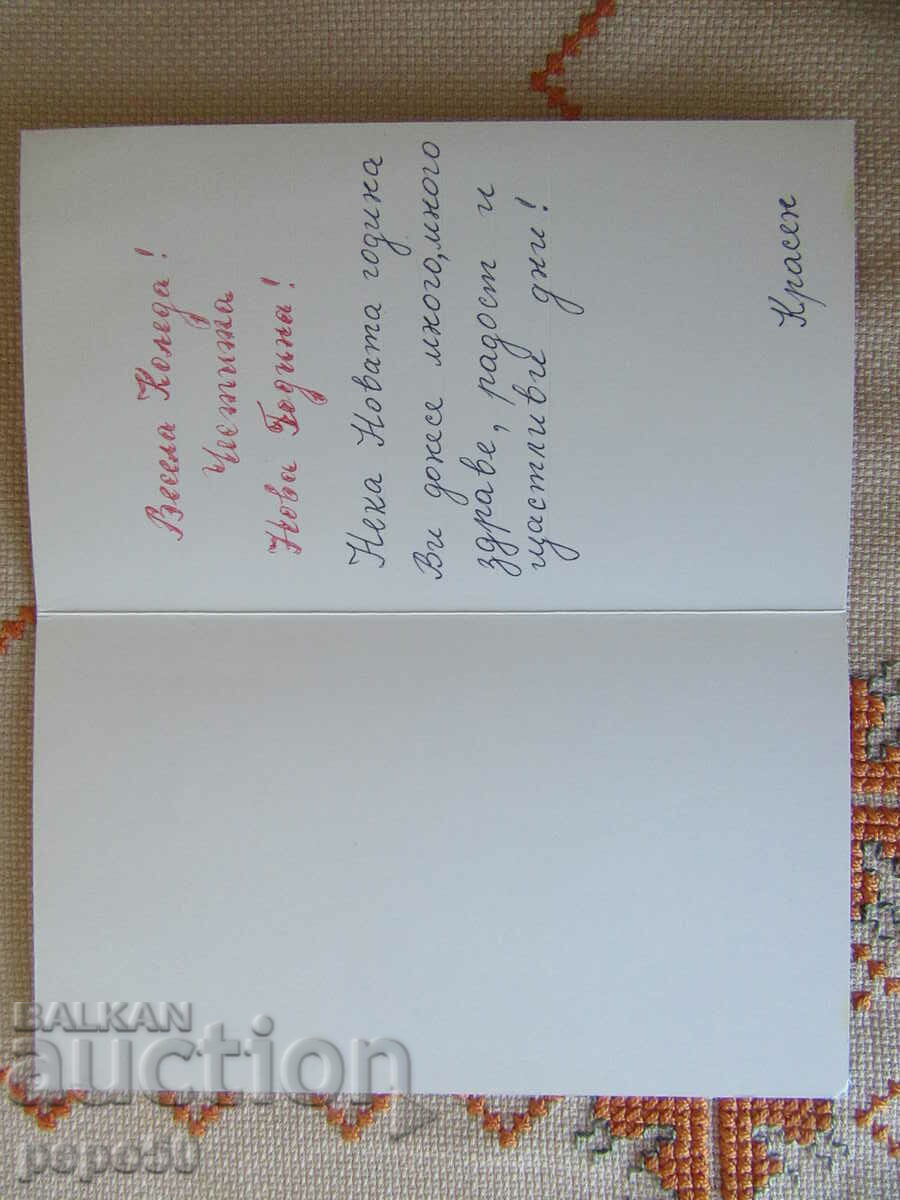 Весела Коледа!
Честита
Нова Година!
Нека Новата година
Ви донесе много, много
здраве, радост и
щастливи дни!
Красен
BALKAN
auction
pepo50